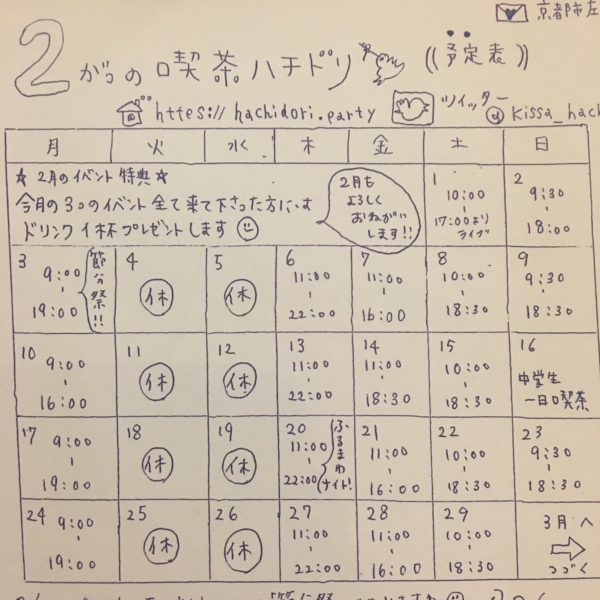 京都市左
2がつの喫茶ハチドリ ((予定表))
https://hachidori.party ツイッター @kissa_hach
月 火 水 木 金 土 日
☆2月のイベント特典☆
今月の3つのイベント全て来て下さった方には
ドリンク1杯プレゼントします
2月も
よろしく
おねがい
します!!
1
10:00
17:00より
ライブ
2
9:30
-
18:00
3
9:00
-
19:00
節分祭!!
4
休
5
休
6
11:00
-
22:00
7
11:00
-
16:00
8
10:00
-
18:30
9
9:30
-
18:30
10
9:00
-
16:00
11
休
12
休
13
11:00
-
22:00
14
11:00
-
18:30
15
10:00
-
18:30
16
中学生
一日喫茶
17
9:00
-
19:00
18
休
19
休
20
11:00
-
22:00
ふるまわ
ナイト!
21
11:00
-
16:00
22
10:00
-
18:30
23
9:30
-
18:30
24
9:00
-
19:00
25
休
26
休
27
11:00
-
22:00
28
11:00
-
16:00
29
10:00
-
18:30
3月へ
つづく